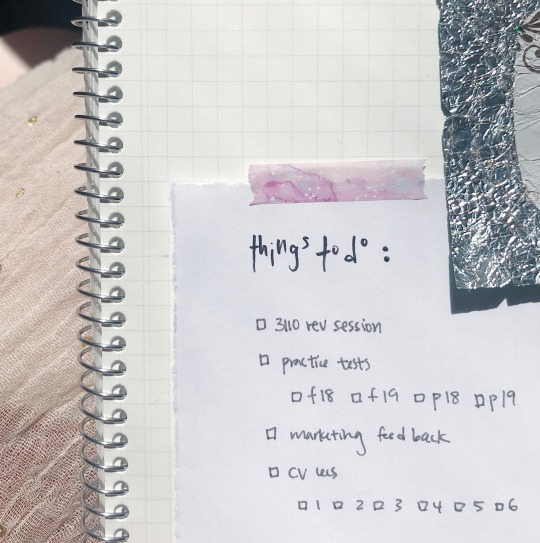 things to do :
□ 3110 rev session
□ practice tests
□ f18 □ f19 □ p18 □ p19
□ marketing feedback
□ CV lecs
□ 1 □ 2 □ 3 □ 4 □ 5 □ 6